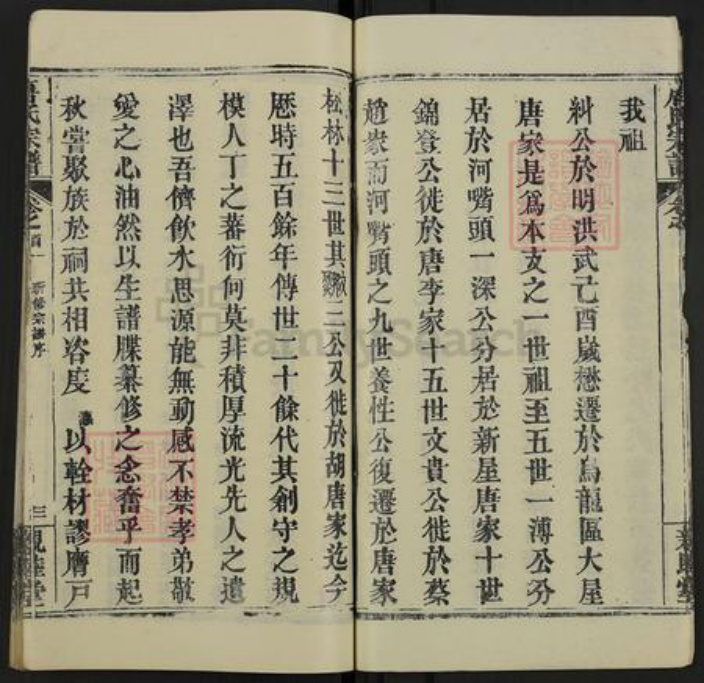 我祖
糾公於明洪武己酉歲懋遷於烏龍區大屋
唐家是爲本支之一世祖至五世一溥公分
居於河嘴頭一深公分居於新屋唐家十世
錦登公徙於唐李家十五世文貴公徙於蔡
趙家而河嘴頭之九世養性公復遷於唐家
松林十三世其三公又徙於胡唐家迄今
歷時五百餘年傳世二十餘代其創守之規
模人丁之蕃衍何莫非積厚流光先人之遺
澤也吾儕飲水思源能無動感不禁孝弟敬
愛之心油然以生譜牒纂修之念奮乎而起
秋嘗聚族於祠共相咨度 以輇材謬膺戸
氏宗譜
卷之首
新修宗譜序
三
親睦堂
FamilySearch